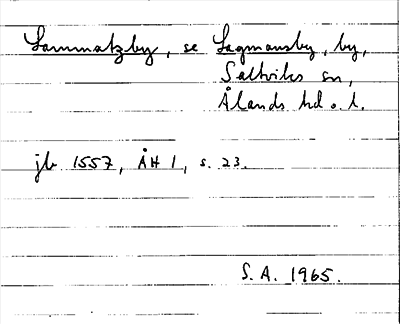 Lammatzby, se Lagmansby, by,
Saltviks sn,
Ålands hd o. l.
jb 1557, ÅH 1, s. 23.
S.A. 1965.